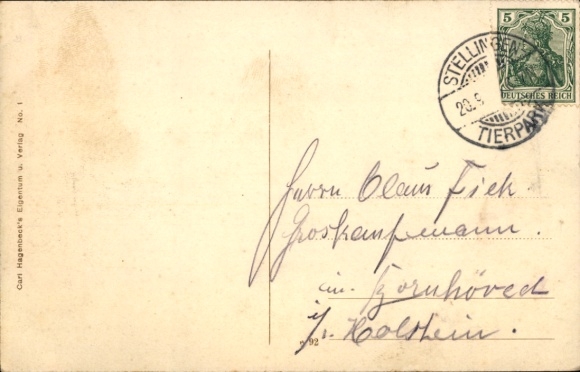 Carl Hagenbeck's Eigentum u. Verlag No. 1
5 5
DEUTSCHES REICH
STELLINGEN
20.9
TIERPARK
Herrn Claus Fick
Groskaufmann.
in Bornhöved
i/. Holstein.
92